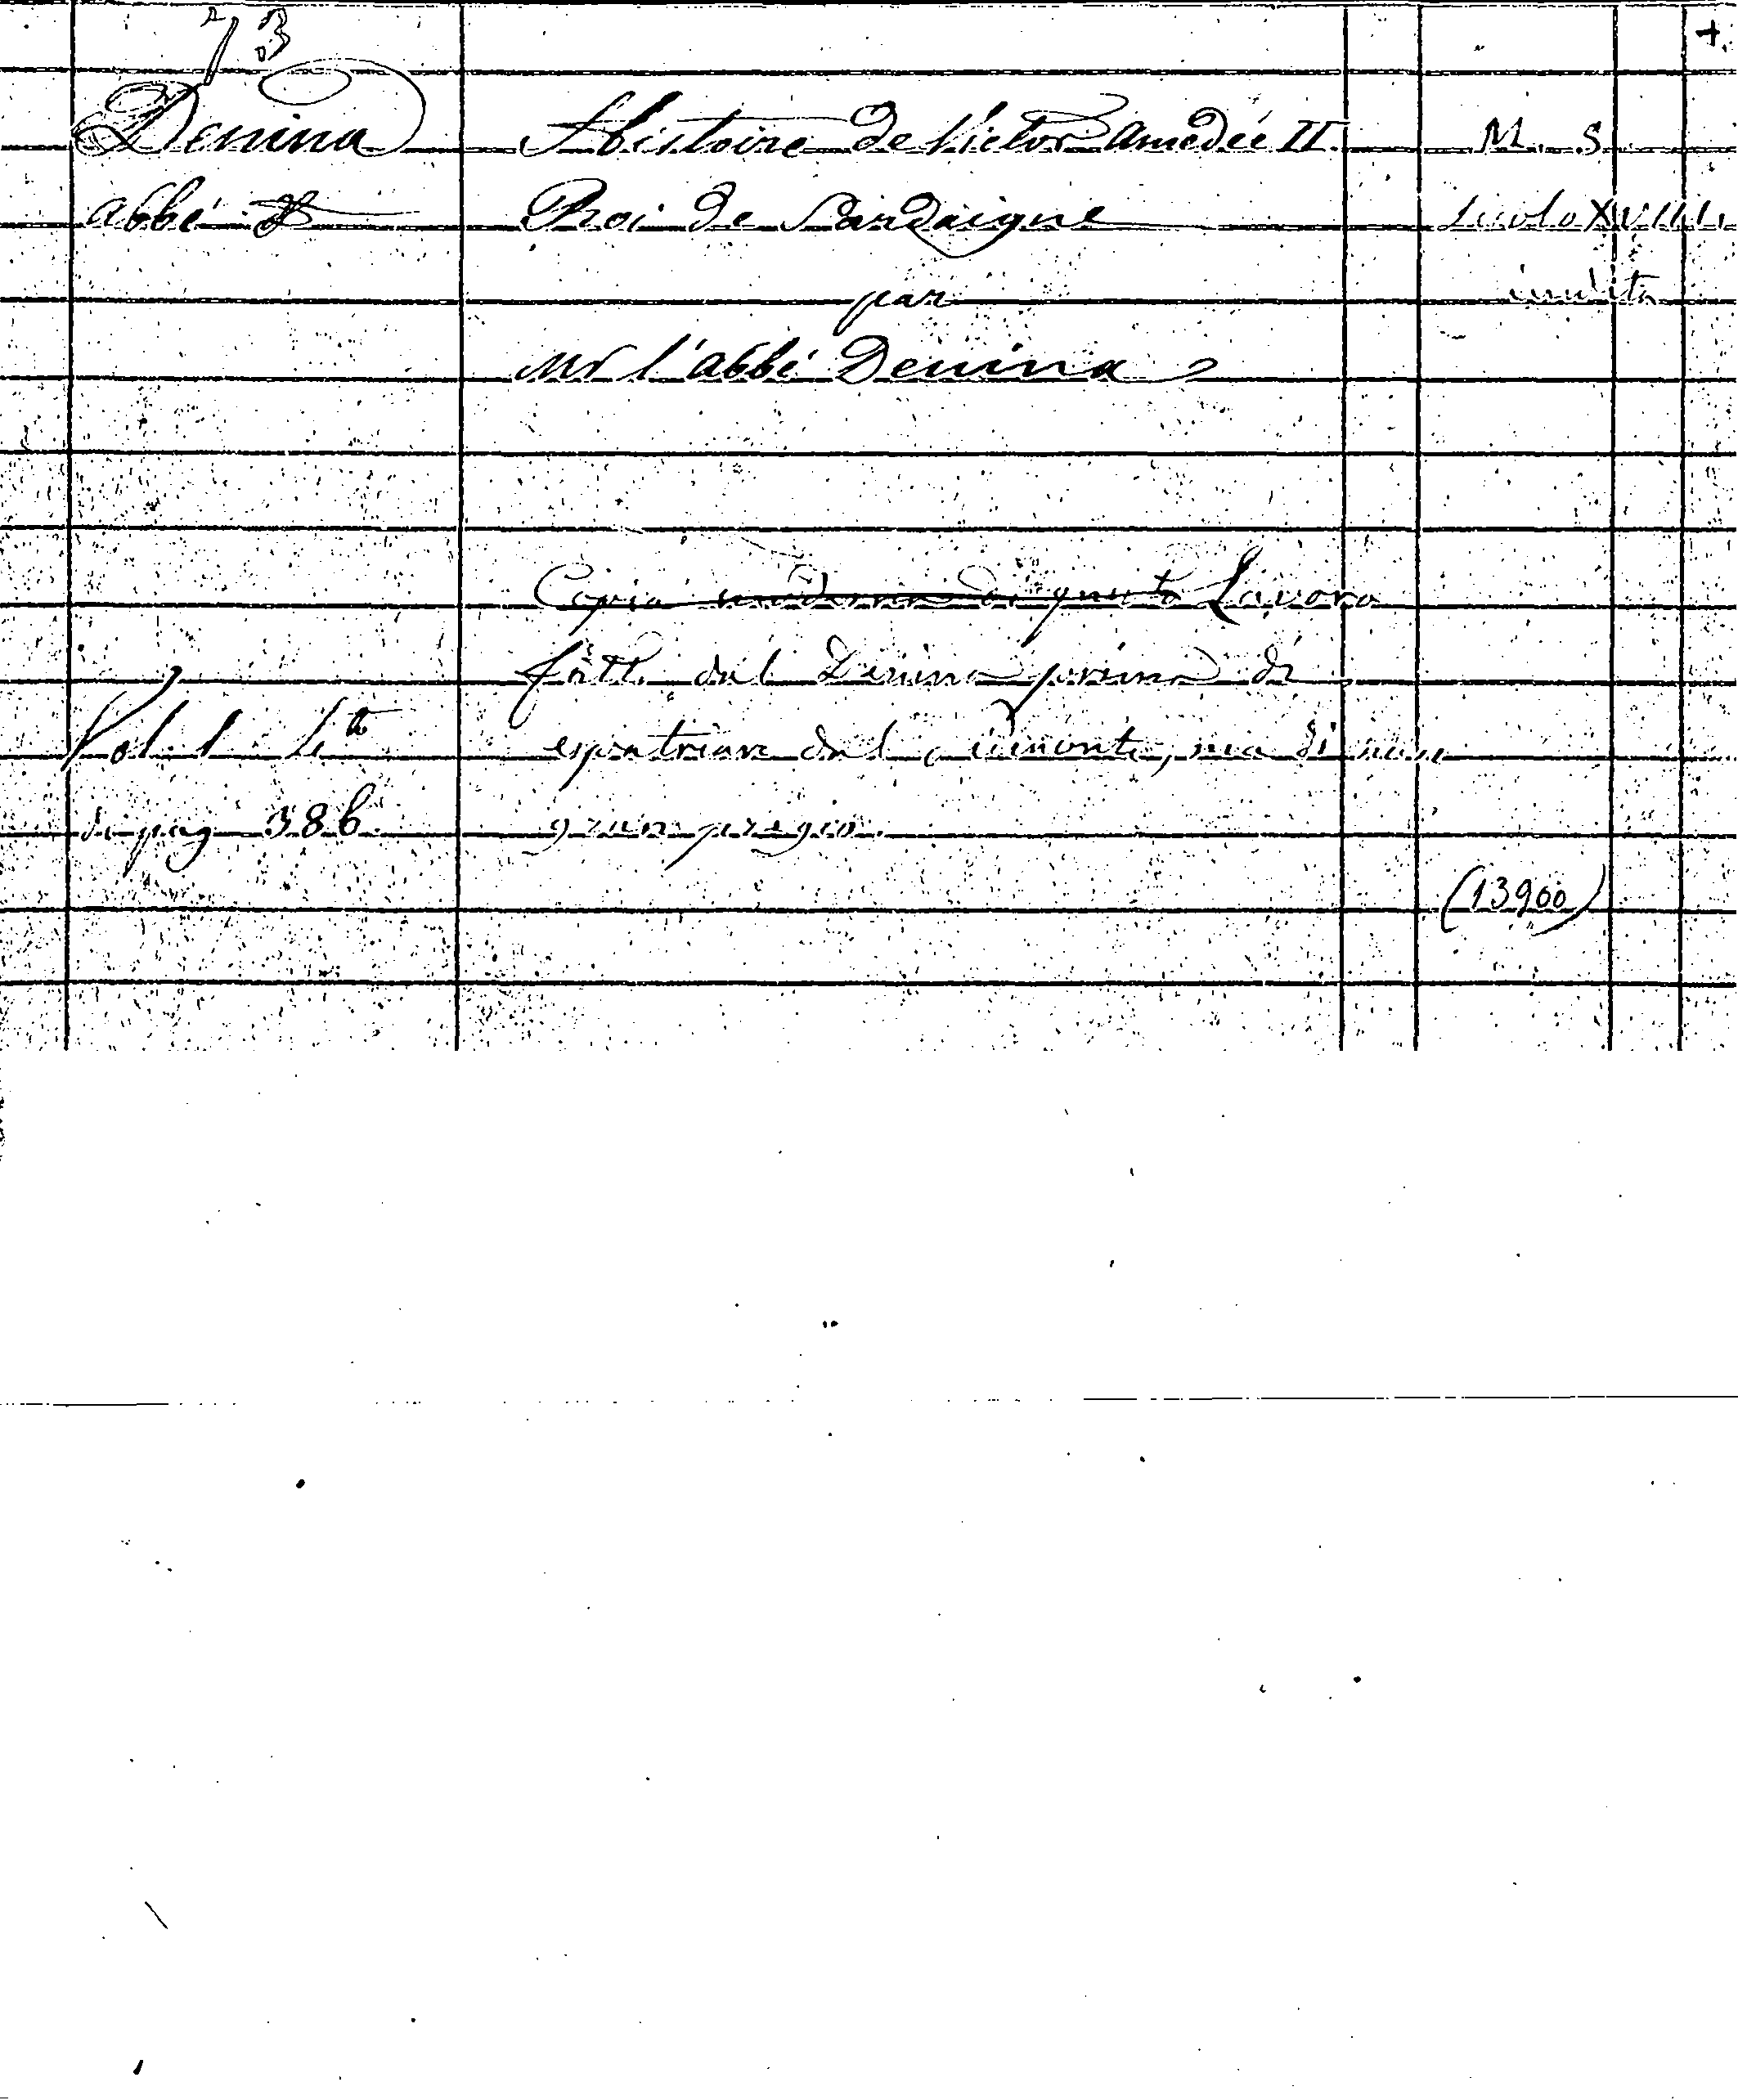 73 +
Denina Histoire de Victor Amedée II. M. S.
abbé Roi de Sardaigne Secolo XVIII
par inedito
Mr l'abbé Denina
Copia moderna di questo Lavoro
fatto dal Denina prima di
Vol. 1 4to espatriare dal Piemonte, ma di non
di pag 386. gran pregio.
(13900)